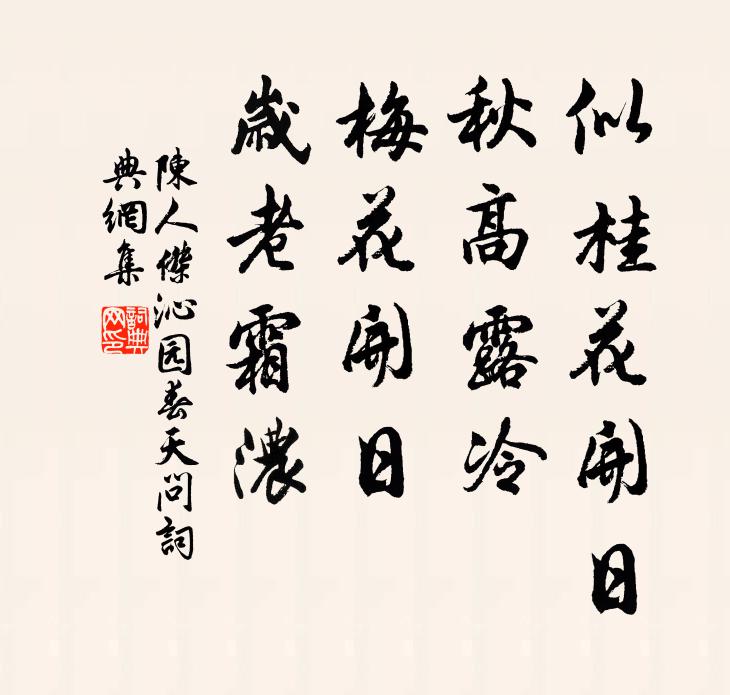 似桂花開日
秋高露冷
梅花開日
歲老霜濃
陳人傑沁园春天問詞
典網集
詞典
网印